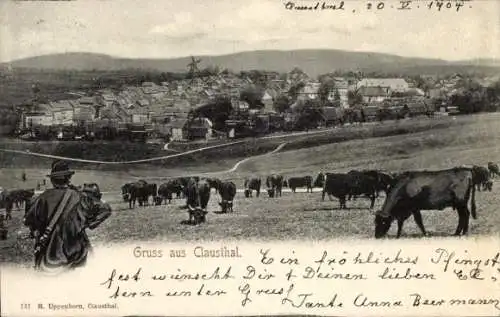 Clausthal, 20. V. 1904.
Gruss aus Clausthal.
Ein fröhliches Pfingst
fest wünscht Dir, Deinen lieben El
tern unter Gruß, Tante Anna Beermann
131 M. Uppenborn, Clausthal.